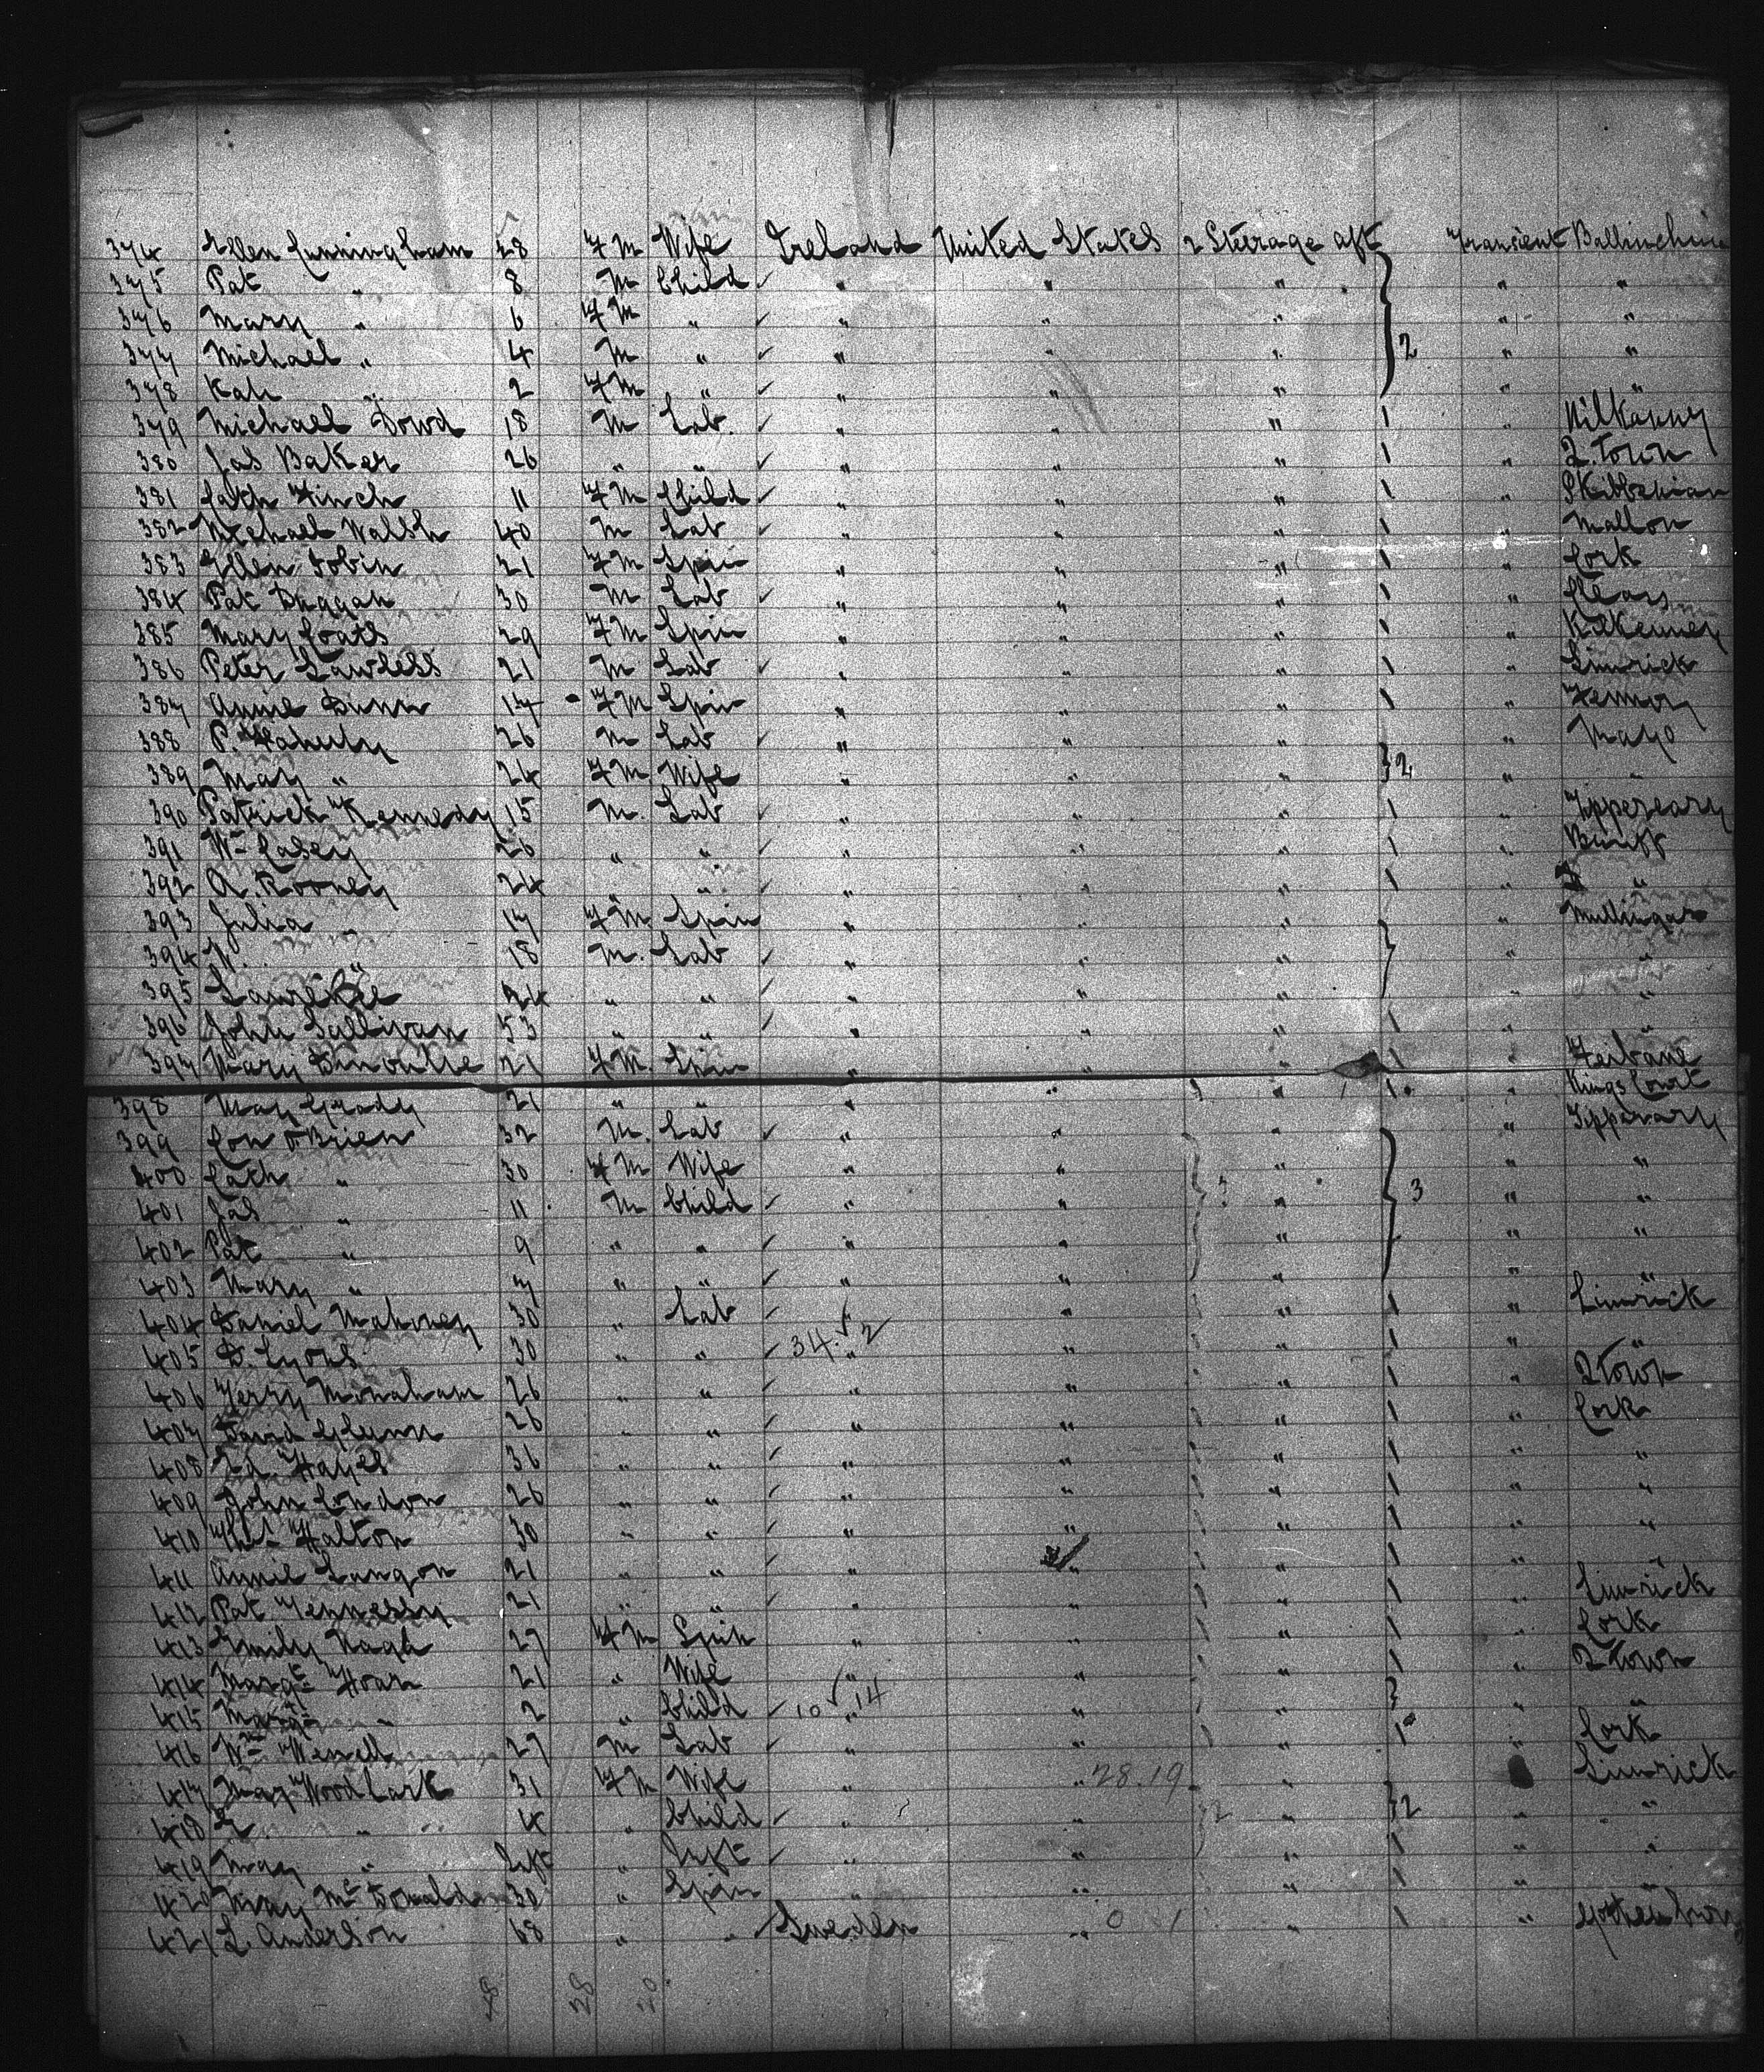 374 Ellen Cunningham 28 FM Wife Ireland United States 2 Steerage aft Transient
375 Pat " 8 M Child " " " " "
376 Mary " 6 FM " " " " " "
377 Michael " 4 M " " " " 2 " "
378 Kate " 2 FM " " " " " "
379 Michael Dowd 18 M Lab. " " " 1 " Kilkanny
380 Jas Baker 26 " " " " " 1 " Q. Town
381 Cath Finch 11 FM Child " " " 1 "
382 Michael Walsh 40 M Lab " " " 1 " Mallon
383 Ellen Tobin 21 FM Spin " " " 1 " Cork
384 Pat Duggan 30 M Lab " " " 1 "
385 Mary Coats 29 FM Spin " " " 1 " Kilkenney
386 Peter Lawless 21 M Lab " " " 1 " Limrick
387 Annie Dunn 17 FM Spin " " " 1 " Fermoy
388 P. 26 M Lab " " " " Mayo
389 May " 24 FM Wife " " " 2 " "
390 Patrick Kennedy 15 M. Lab " " " 1 " Tipperary
391 Wm Casey 26 " " " " " 1 " Bruff
392 A. Rooney 24 " " " " " 1 " "
393 Julia " 17 FM Spin " " " " Mullingar
394 " 18 M. Lab " " " " "
395 Lawrence 24 " " " " " " "
396 John Sullivan 53 " " " " " 1 " "
397 Mary 21 FM. Spin " " " 1 "
398 May Grady 21 " " " " " 1 " Kings Court
399 Con OBrien 32 M. Lab " " " " Tipperary
400 Cath " 30 FM Wife " " " " "
401 Jas " 11 M Child " " " 3 " "
402 Pat " 9 " " " " " " "
403 Mary " 7 " " " " " " "
404 Daniel Mahoney 30 " Lab " " " 1 " Limrick
405 D. Lyons 30 " " 34. 2 " " " 1 " "
406 Jerry Monaham 26 " " " " " 1 " Q Town
407 David Glunn 26 " " " " " 1 " Cork
408 Ed. Hayes 36 " " " " " 1 " "
409 John Condon 26 " " " " " 1 " "
410 Thos Halton 30 " " " " " 1 " "
411 Annie Langon 21 " " " " " 1 " "
412 Pat 21 " " " " " 1 " Limrick
413 Emily Nagle 27 FM Spin " " " 1 " Cork
414 Margt Horan 21 " Wife " " " 1 " Q Town
415 Margt " 2 " Child 10 14 " " " " "
416 Wm 27 M Lab " " " 1 " Cork
417 May Woodlark 31 FM Wife " " 28.19 " Limrick
418 " 4 " Child " " " 2 " "
419 May " Inft " Inft " " " 1 " "
420 May McDonald 30 " Spin " " " 1 " "
421 L. Anderson 68 " " Sweden " 0 1 " 1 "
28 20